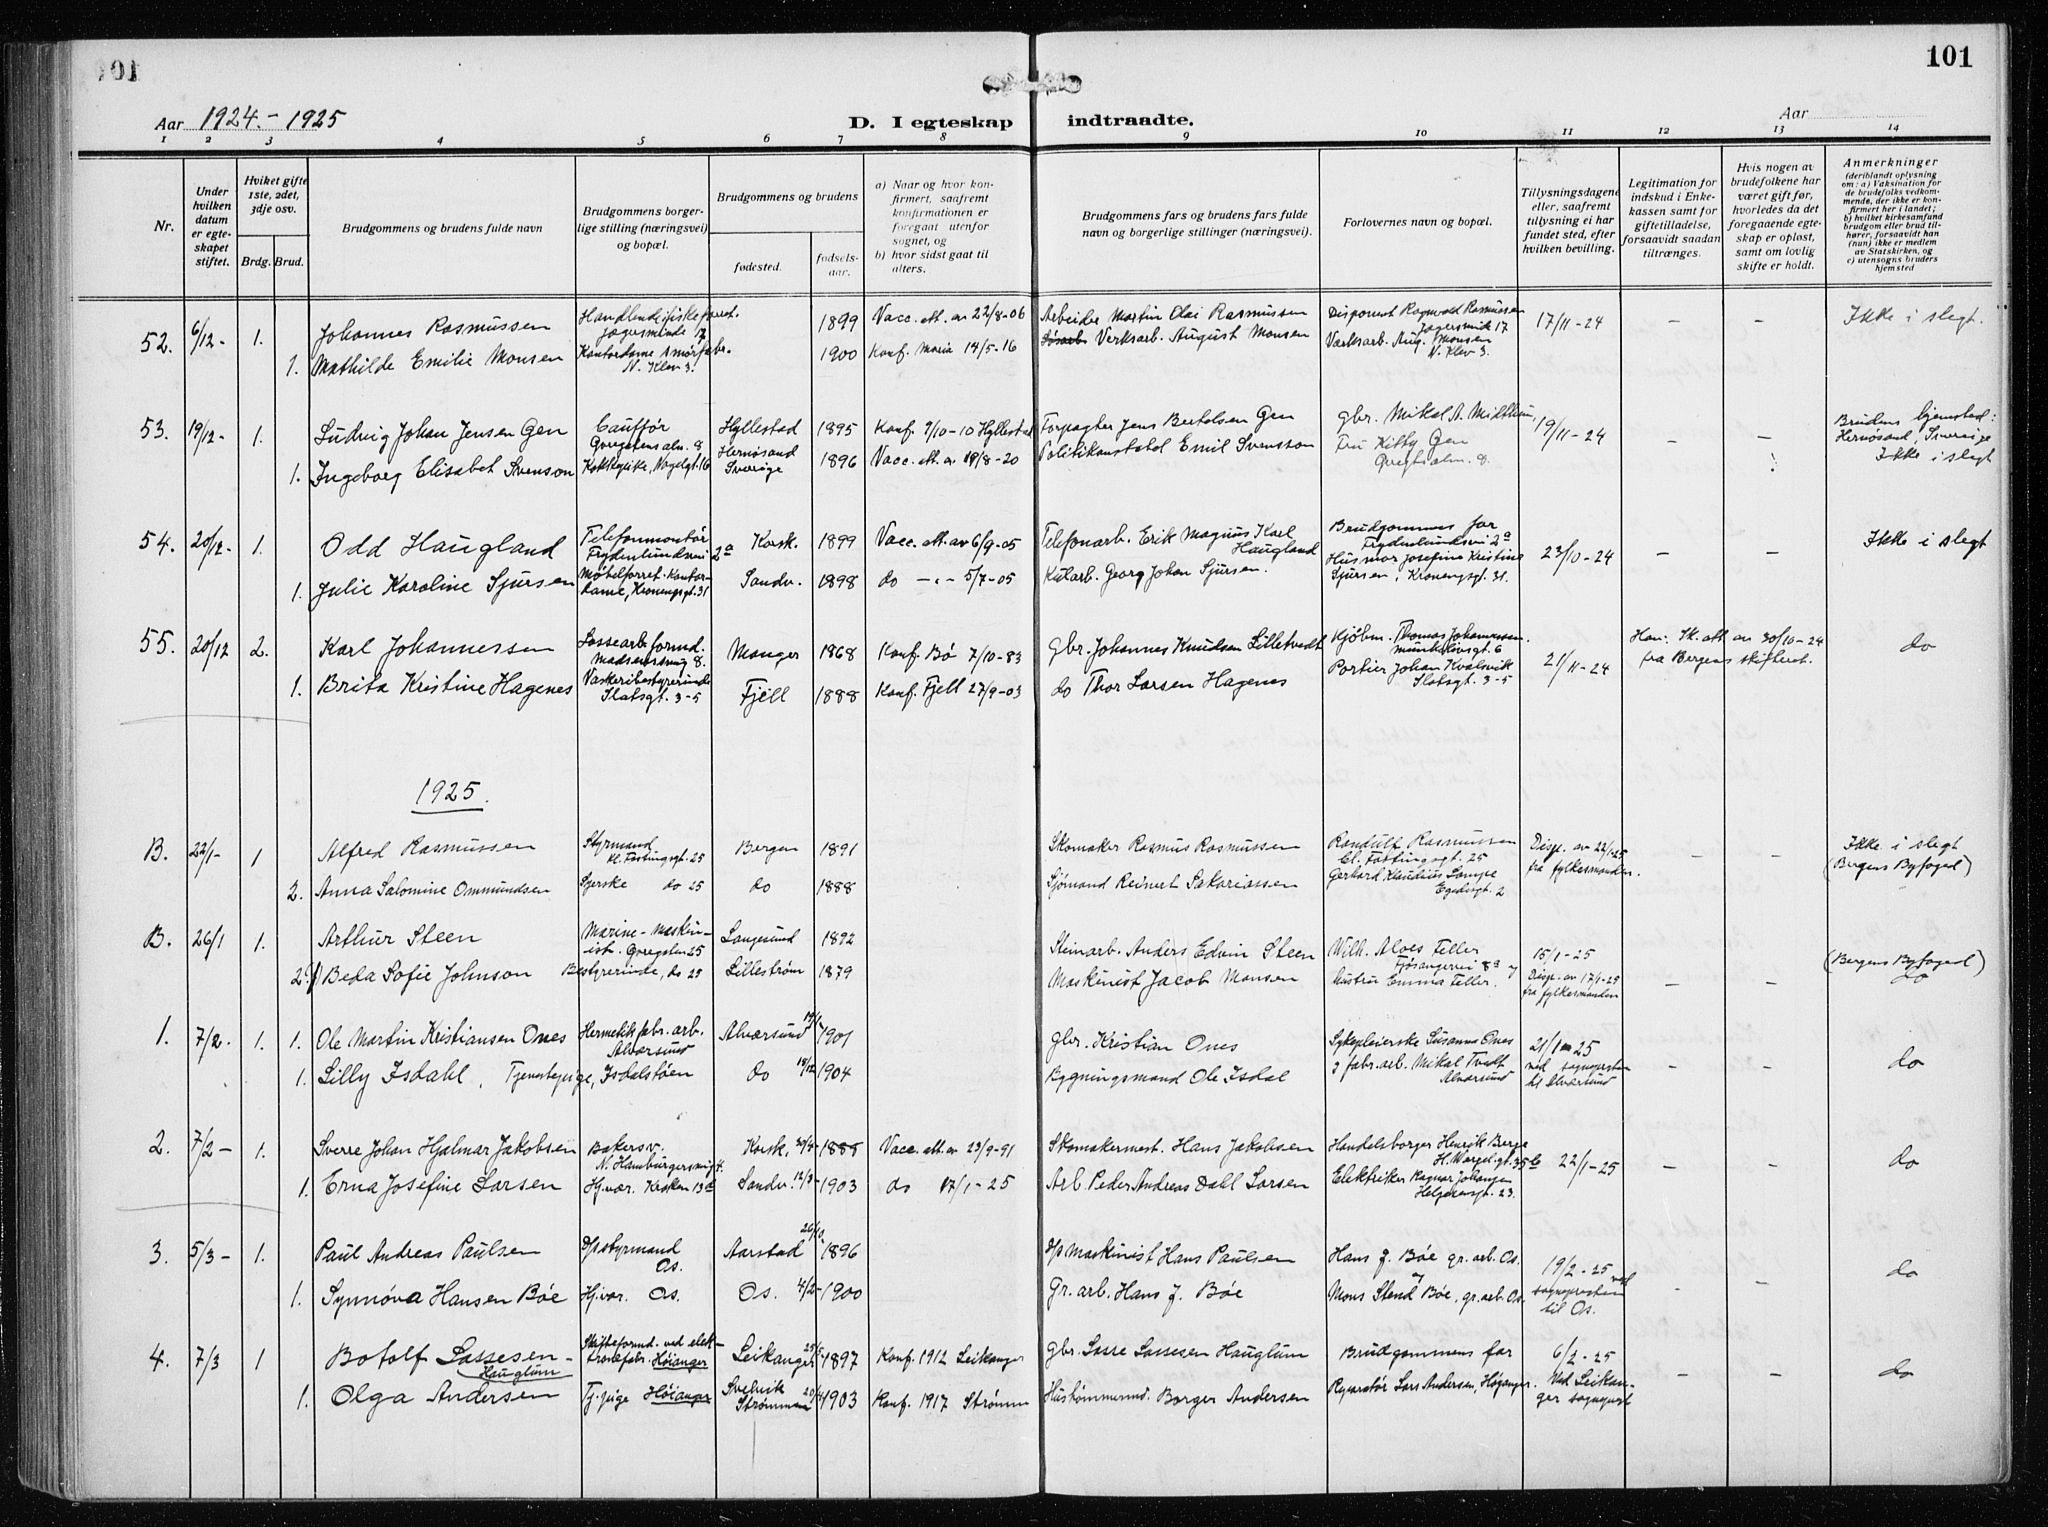 101
101
Aar 1924.-1925
D. I egteskap indtraadte.
Aar
1 2 3 4 5 6 7 8 9 10 11 12 13 14
Nr.
Under hvilken datum er egteskapet stiftet.
Hviket gifte 1ste, 2det, 3dje osv.
Brdg. Brud.
Brudgommens og brudens fulde navn
Brudgommens borgerlige stilling (næringsvei) og bopæl.
Brudgommens og brudens
fødested.
fødselsaar.
a) Naar og hvor konfirmert, saafremt konfirmationen er foregaat utenfor sognet, og
b) hvor sidst gaat til alters.
Brudgommens fars og brudens fars fulde navn og borgerlige stillinger (næringsvei).
Forlovernes navn og bopæl.
Tillysningsdagene eller, saafremt tillysning ei har fundet sted, efter hvilken bevilling.
Legitimation for indskud i Enkekassen samt for giftetilladelse, forsaavidt saadan tiltrænges.
Hvis nogen av brudefolkene har været gift før, hvorledes da det foregaaende egteskap er opløst, samt om lovlig skifte er holdt.
Anmerkninger (deriblandt oplysning om: a) Vaksination for de brudefolks vedkommende, der ikke er konfirmert her i landet; b) hvilket kirkesamfund brudgom eller brud tilhører, forsaavidt han (hun) ikke er medlem av Statskirken, og c) utensogns bruders hjemsted
52. 6/12- 1. Johannes Rasmussen 1899 Vacc. att. av 22/8-06 Arbeider Martin Olai Rasmussen Disponent Ragnvald Rasmussen 17 17/11-24 - - Ikke i slegt.
1. Mathilde Emilie Monsen Kontordame smørfabr. N. Klev 3. 1900 Konf. Maria 14/5-16 Verksarb. August Monsen Verksarb. Aug. Monsen N. Klev 3.
53. 19/12- 1. Ludvig Johan Jensen Gen Cauffør 8 Hyllestad 1895 Konf. 9/10-10 Hyllestad Forpagter Jens Bertelsen Gen gbr. Mikal A. 19/11-24 - - Brudens hjemsted: Hernøsand, Sverige Ikke i slegt
1. Ingeborg Elisabet Svenson Kokkepike, 16 Hernøsand Sverige 1896 Vacc. att. av 19/8-20 Politikonstabel Emil Svensson Fru Kitty Gen 8.
54. 20/12- 1. Odd Haugland Telefonmontør Frydenlundsvei 2a Korsk. 1899 Vacc. att. av 6/9-05 Telefonarb. Erik Magnus Karl Haugland Brudgommens far Frydenlundsvei 2a 23/10-24 - - Ikke i slegt
1. Julie Karoline Sjursen Møbelforret. Kontordame, Kronengsgt. 31 Sandv. 1898 do -"- 5/7-05 Kularb. Georg Johan Sjursen. Husmor Josefine Kristine Sjursen, Kronengsgt. 31.
55. 20/12 2. Karl Johannessen Lossearb. formd. 8. Manger 1868 Konf. Bø 7/10-83 gbr. Johannes Knudsen Lilletvedt Kjøbm. Thomas Johannessen Munkelivsgt. 6 21/11-24 Han: Sk. att. av 30/10-24 fra Bergens skifteret. do
1. Brita Kristine Hagenes Vaskeribestyrerinde Slotsgt. 3-5 Fjell 1888 Konf. Fjell 27/9-03 do Thor Larsen Hagenes Portier Johan Kvalvik Slotsgt. 3-5
1925.
B. 22/1- 1 Alfred Rasmussen Styrmand Kl. Fastingsgt. 25 Bergen 1891 Skomaker Rasmus Rasmussen Randulf Rasmussen Cl. Fastingsgt. 25 Disp. av 22/1-25 fra fylkesmanden. - - Ikke i slegt (Bergens Byfoged)
2. Anna Salomine Ommundsen Syerske do 25 do 1888 Sjømand Reinert Sakariassen Gerhard Klaudius Lampe Egedesgt. 2
B. 26/1 1. Arthur Steen Marine-Maskinist. 25 Langesund 1892 Steinarb. Anders Edvin Steen Wilh. Aloes Teller Fjøsangervei 8a og 15/1-25 (Bergens Byfoged)
2. Beda Sofie Johnson Bestyrerinde, do 25 Lillestrøm 1879 Maskinist Jacob Monsen Hustru Emma Teller. Disp. av 17/1-25 fra fylkesmanden - - do
1. 7/2- 1. 1. Ole Martin Kristiansen Ones Hermetikfabr. arb. Alversund Alversund 1901 gbr. Kristian Ones Sykepleierske Susanna Ones 21/1-25 ved sognepresten til Alversund - - do
1. Lilly Isdahl, Tjenestepige, Isdalstøen do 18/12 1904 Bygningsmand Ole Isdal fabr. arb. Mikal Tvedt Alversund
2. 7/2- 1. Sverre Johan Hjalmar Jakobsen Bakersv. N. Hamburgersmug 4. Korsk. 1885 Vacc. att. av 23/9-91 Skomakermest. Hans Jakobsen Handelsborger Henrik Berge H. Wergel.gt. 35b 22/1-25 - - do
1. Erna Josefine Larsen Hj.vær. Kroken 13 Sandv. 12/3- 1903 do 17/1-25 Arb. Peder Andreas Dahl Larsen Elektriker Ragnar Johansen Helgesensgt. 23.
3. 5/3- 1. Paul Andreas Paulsen D/p styrmand Os. Aarstad 26/10 1896 D/p Maskinist Hans Paulsen Hans J. Bøe gr. arb. Os. og 19/2-25 ved sognepresten til Os. - - do
1. Synnøva Hansen Bøe Hj.vær. Os. Os. 4/2- 1900 Gr. arb. Hans J. Bøe Mons Stend Bøe, gr. arb. Os.
4. 7/3 1 Botolf Lassesen Hauglum Skifteformd. ved elektrodefabr. Høianger Leikanger 1897 Konf. 1912 Leikanger gbr. Lasse Lassesen Hauglum Brudgommens far 6/2-25 Ved Leikanger sogneprst - - do
1. Olga Andersen Tj.pige Høianger Svelvik Strømmen 1903 Konf. 1917 Strømm Borger Andersen Reparatør Lars Andersen, Høyanger.